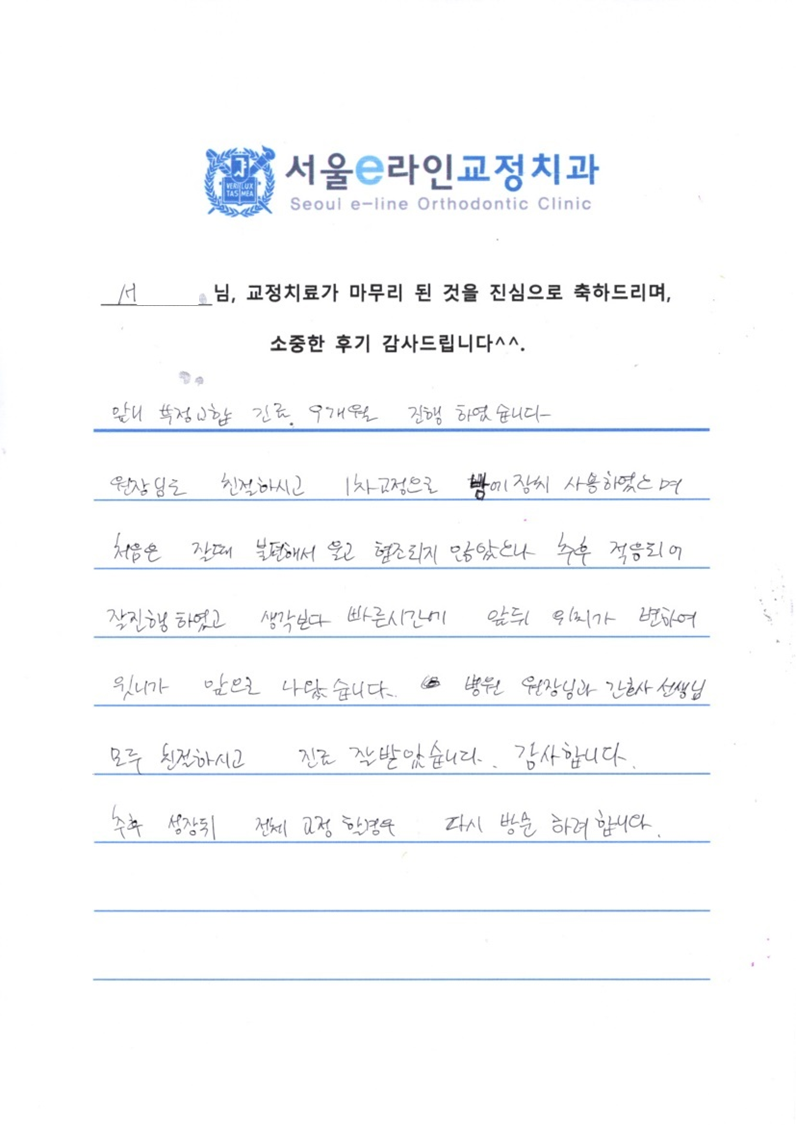 서울e라인교정치과
VERI LUX TAS MEA
Seoul e-line Orthodontic Clinic
서 님, 교정치료가 마무리 된 것을 진심으로 축하드리며,
소중한 후기 감사드립니다^^.
앞니 부정교합 진료. 9개월 진행 하였습니다-
원장님도 친절하시고 1차교정으로 밤에 장치 사용하였으며
처음은 잘때 불편해서 울고 협조되지 않았으나 추후 적응되어
잘진행하였고 생각보다 빠른시간에 앞뒤 위치가 변하여
윗니가 앞으로 나왔습니다. 병원 원장님과 간호사 선생님
모두 친절하시고 진료 잘받았습니다. 감사합니다.
추후 성장뒤 전체 교정 할경우 다시 방문 하려합니다.